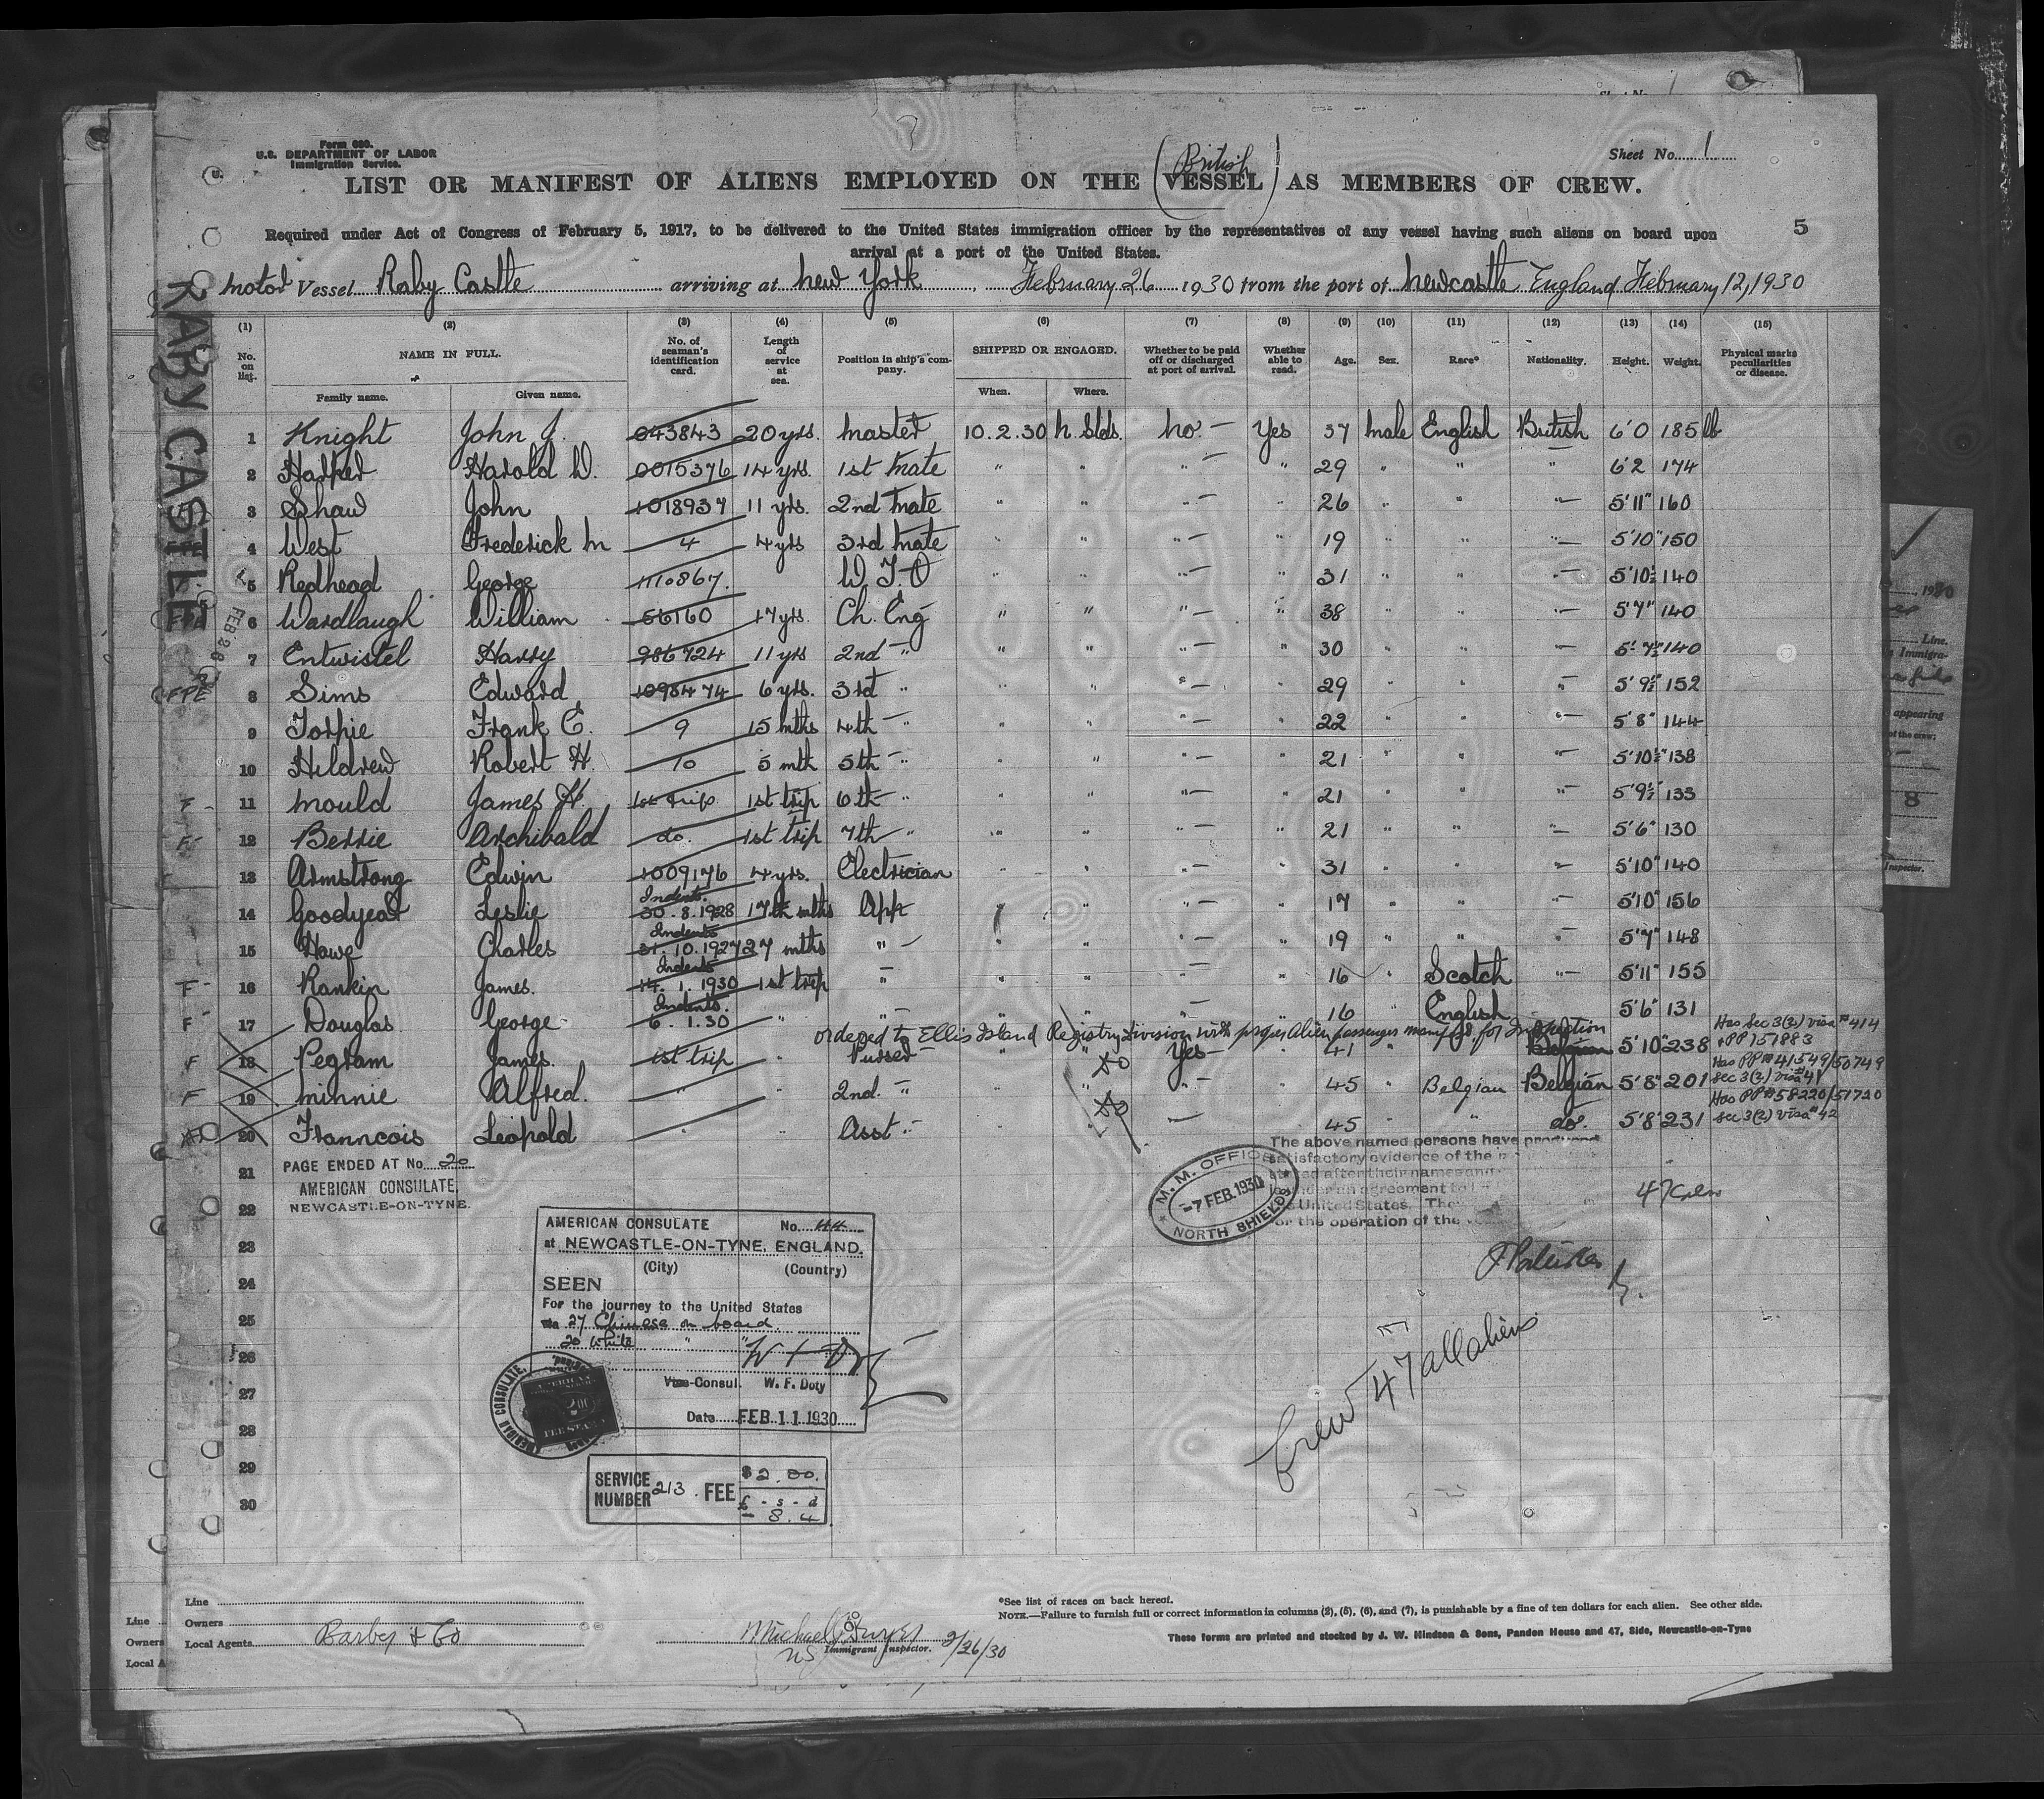 Form 680.
U.S. DEPARTMENT OF LABOR
Immigration Service.
Sheet No. 1
British
LIST OR MANIFEST OF ALIENS EMPLOYED ON THE (VESSEL) AS MEMBERS OF CREW.
Required under Act of Congress of February 5, 1917, to be delivered to the United States immigration officer by the representatives of any vessel having such aliens on board upon
arrival at a port of the United States.
5
motor Vessel Raby Castle arriving at New York, February 26 1930 from the port of Newcastle England February 12, 1930
RABY CASTLE
(1) (2) (3) (4) (5) (6) (7) (8) (9) (10) (11) (12) (13) (14) (15)
No. on list. NAME IN FULL. No. of seaman's identification card. Length of service at sea. Position in ship's company. SHIPPED OR ENGAGED. Whether to be paid off or discharged at port of arrival. Whether able to read. Age. Sex. Race* Nationality. Height. Weight. Physical marks peculiarities or disease.
Family name. Given name. When. Where.
1 Knight John J. 043843 20 yrs. Master 10.2.30 N. Slds. No. — Yes 37 Male English British 6'0 185 lb
2 Harker Harold W. 0015376 14 yrs. 1st Mate " " " — " 29 " " " 6'2 174
3 Shaw John 1018937 11 yrs. 2nd Mate " " " — " 26 " " " — 5'11" 160
4 West Frederick M 4 4 yrs 3rd Mate " " " — " 19 " " " — 5'10" 150
5 Redhead George 1110867. W.T.O " " " — " 31 " " " — 5'10½ 140
6 Wardlaugh William 56160 17 yrs. Ch. Eng " " " — " 38 " " " — 5'7" 140
7 Entwistel Harry 986724 11 yrs 2nd " " " " — " 30 " " " — 5'7½ 140
8 Sims Edward 1098474 6 yrs. 3rd " " " " — " 29 " " " — 5'9½" 152
9 Torpie Frank E. 9 15 mths 4th " " " " — " 22 " " " — 5'8" 144
10 Hildrew Robert H. 10 5 mth 5th " " " " — " 21 " " " — 5'10½" 138
11 Mould James H. 1st trip 1st trip 6th " " " " — " 21 " " " — 5'9½" 133
12 Berrie Archibald do. 1st trip 7th " " " " — " 21 " " " — 5'6" 130
13 Armstrong Edwin 1009176 4 yrs. Electrician " " " — " 31 " " " — 5'10" 140
14 Goodyear Leslie Indents. 30.8.1928 17th mths App " " " — " 17 " " " — 5'10" 156
15 Howe Charles Indents 31.10.1927 27 mths " " " " — " 19 " " " — 5'7" 148
16 Rankin James. Indents 14.1.1930 1st trip " " " " — " 16 " Scotch " — 5'11" 155
17 Douglas George Indents. 6.1.30 " " " " " — " 16 " English " 5'6" 131
ordered to Ellis Island Registry Division with proper alien passenger manifest. for Inspection
18 Pegram James. 1st trip " Purser " " Yes — 41 " Belgian 5'10" 238 Has Sec 3(2) visa #414 + PP 151883
19 Minnie Alfred. " " 2nd. " " " " — 45 " Belgian Belgian 5'8" 201 Has PP# 41549/50749 Sec 3(2) visa #41
20 Franncois Leopold " " Asst " " " — 45 " " do. 5'8" 231 Has PP# 58220/51720 Sec 3(2) visa #42
21 22 23 24 25 26 27 28 29 30
PAGE ENDED AT No. 20
AMERICAN CONSULATE,
NEWCASTLE-ON-TYNE.
The above named persons have produced
satisfactory evidence of the
stated after their names and
under an agreement to
United States. The
for the operation of the
M. M. OFFICE
-7 FEB. 1930
NORTH SHIELDS
47 Crew
AMERICAN CONSULATE No. 44
at NEWCASTLE-ON-TYNE, ENGLAND.
(City) (Country)
SEEN
For the journey to the United States
via 27 Chinese on board.
20 White "
Vice-Consul. W. F. Doty
Date FEB 11 1930
AMERICAN CONSULATE,
SERVICE NUMBER 213. FEE $2.00.
£ - s - d
- 8. 4
Crew 47 all aliens
Line
Owners
Local Agents Barber & Co
Michael
Immigrant Inspector. 2/26/30
*See list of races on back hereof.
NOTE.—Failure to furnish full or correct information in columns (2), (5), (6), and (7), is punishable by a fine of ten dollars for each alien. See other side.
These forms are printed and stocked by J. W. Hindson & Sons, Pandon House and 47, Side, Newcastle-on-Tyne